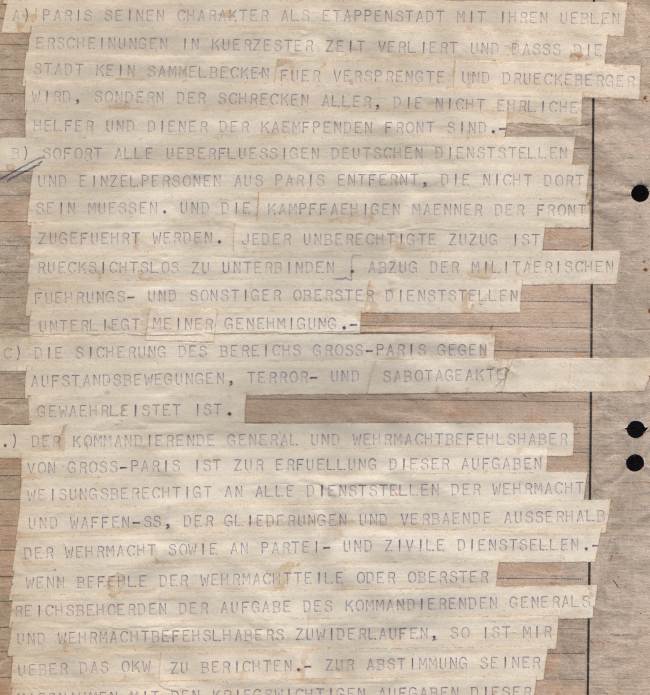 A) PARIS SEINEN CHARAKTER ALS ETAPPENSTADT MIT IHREN UEBLEN
ERSCHEINUNGEN IN KUERZESTER ZEIT VERLIERT UND DASSS DIE
STADT KEIN SAMMELBECKEN FUER VERSPRENGTE UND DRUECKEBERGER
WIRD, SONDERN DER SCHRECKEN ALLER, DIE NICHT EHRLICHE
HELFER UND DIENER DER KAEMFPENDEN FRONT SIND.-
B) SOFORT ALLE UEBERFLUESSIGEN DEUTSCHEN DIENSTSTELLEN
UND EINZELPERSONEN AUS PARIS ENTFERNT, DIE NICHT DORT
SEIN MUESSEN. UND DIE KAMPFFAEHIGEN MAENNER DER FRONT
ZUGEFUEHRT WERDEN. JEDER UNBERECHTIGTE ZUZUG IST
RUECKSICHTSLOS ZU UNTERBINDEN . ABZUG DER MILITAERISCHEN
FUEHRUNGS- UND SONSTIGER OBERSTER DIENSTSTELLEN
UNTERLIEGT MEINER GENEHMIGUNG.-
C) DIE SICHERUNG DES BEREICHS GROSS-PARIS GEGEN
AUFSTANDSBEWEGUNGEN, TERROR- UND SABOTAGEAKTE
GEWAEHRLEISTET IST.
.) DER KOMMANDIERENDE GENERAL UND WEHRMACHTBEFEHLSHABER
VON GROSS-PARIS IST ZUR ERFUELLUNG DIESER AUFGABEN
WEISUNGSBERECHTIGT AN ALLE DIENSTSTELLEN DER WEHRMACHT
UND WAFFEN-SS, DER GLIEDERUNGEN UND VERBAENDE AUSSERHALB
DER WEHRMACHT SOWIE AN PARTEI- UND ZIVILE DIENSTSELLEN.-
WENN BEFEHLE DER WEHRMACHTTEILE ODER OBERSTER
REICHSBEHOERDEN DER AUFGABE DES KOMMANDIERENDEN GENERALS
UND WEHRMACHTBEFEHSLHABERS ZUWIDERLAUFEN, SO IST MIR
UEBER DAS OKW ZU BERICHTEN.- ZUR ABSTIMMUNG SEINER
MIT DEN KRIEGSWICHTIGEN AUFGABEN DIESER